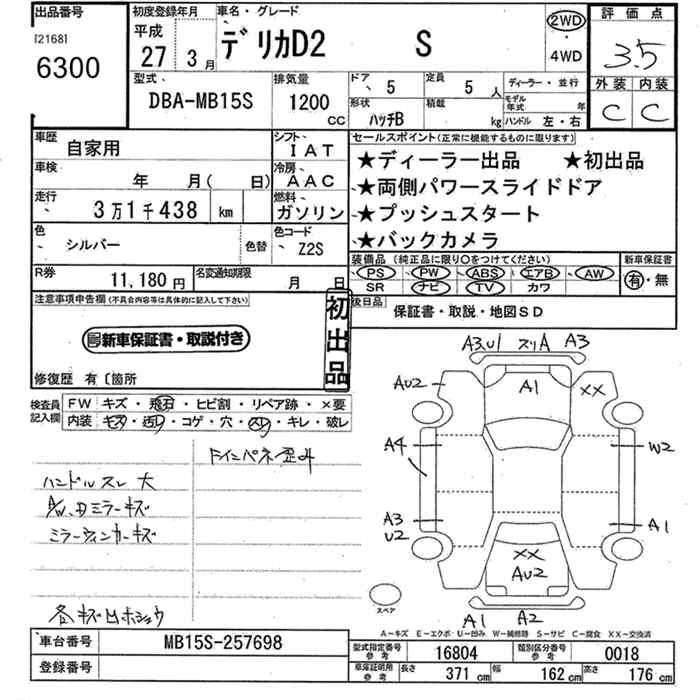 出品番号 初度登録年月 車名・グレード 評価点
[2168] 平成 デリカD2 S 2WD
6300 27年 3月 4WD 3.5
型式 排気量 ドア 5 定員 5人 ディーラー・並行 外装 内装
DBA-MB15S 1200cc 形状 ハッチB 積載 kg モデル年式 年 C C
ハンドル 左・右
車歴 自家用 シフト IAT セールスポイント(正常に機能するものに限ります)
車検 年 月( 日) 冷房 AAC ★ディーラー出品 ★初出品
走行 3万1千438 km 燃料 ガソリン ★両側パワースライドドア
色 シルバー 色替 色コード Z2S ★プッシュスタート
★バックカメラ
装備品(純正品に限り○をつけてください) 新車保証書
R券 11,180円 名変通知期限 月 日 PS PW ABS エアB AW 有・無
SR ナビ TV カワ
注意事項申告欄(不具合内容等は具体的に記入して下さい) 初出品 後日品 保証書・取説・地図SD
新車保証書・取説付き
修復歴 有〔箇所
検査員記入欄 FW キズ・飛石・ヒビ割・リペア跡・×要
内装 キズ・汚レ・コゲ・穴・スレ・キレ・破レ
ハンドルスレ 大
ミラーウィンカーキズ
A3,U1 スリA A3
AU2 A1 XX
A4 W2
A3 U2 A1
XX
AU2
スペア
A1 A2
A-キズ E-エクボ U-凹み W-補修跡 S-サビ C-腐食 XX-交換済
車台番号 MB15S-257698 型式指定番号 参考 16804 類別区分番号 参考 0018
登録番号 車庫証明用 参考 長さ 371cm 幅 162cm 高さ 176cm